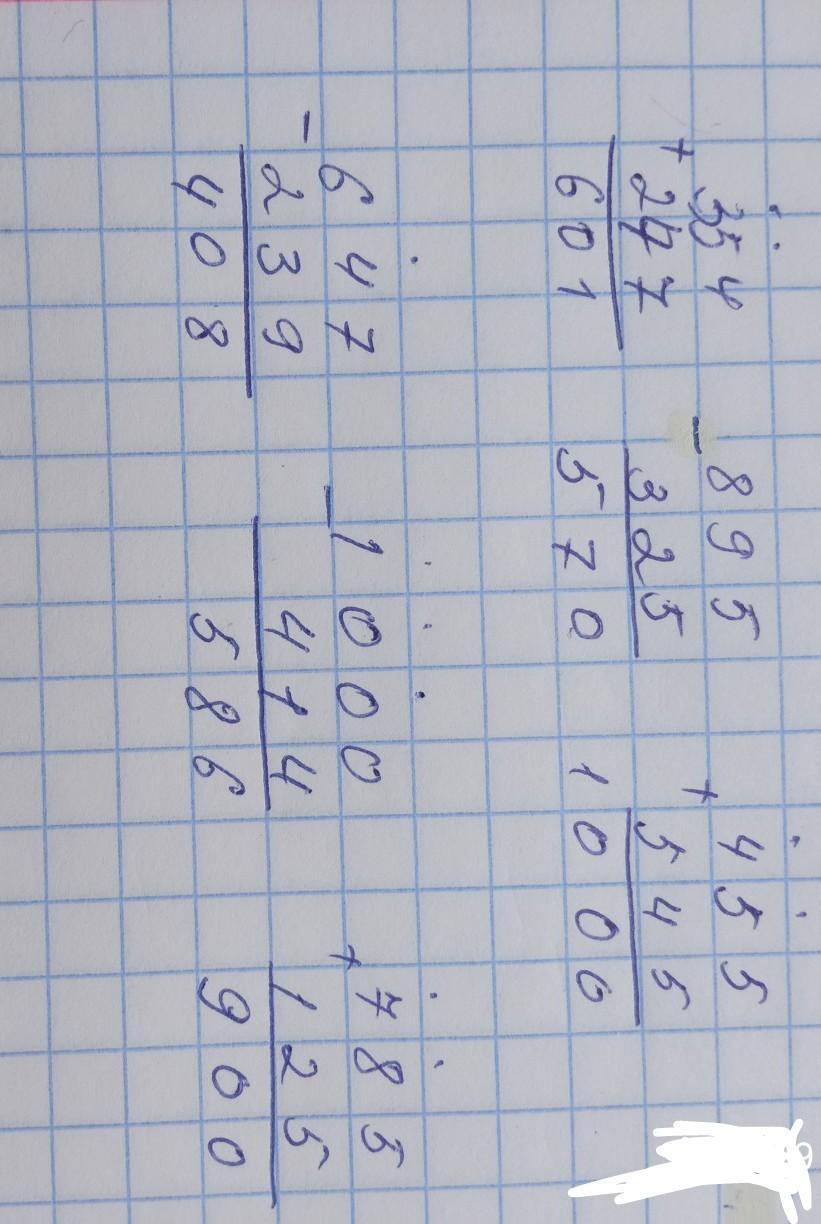 354
+ 247
601
895
- 325
570
455
+ 545
1000
647
- 239
408
1000
- 414
586
785
+ 125
900